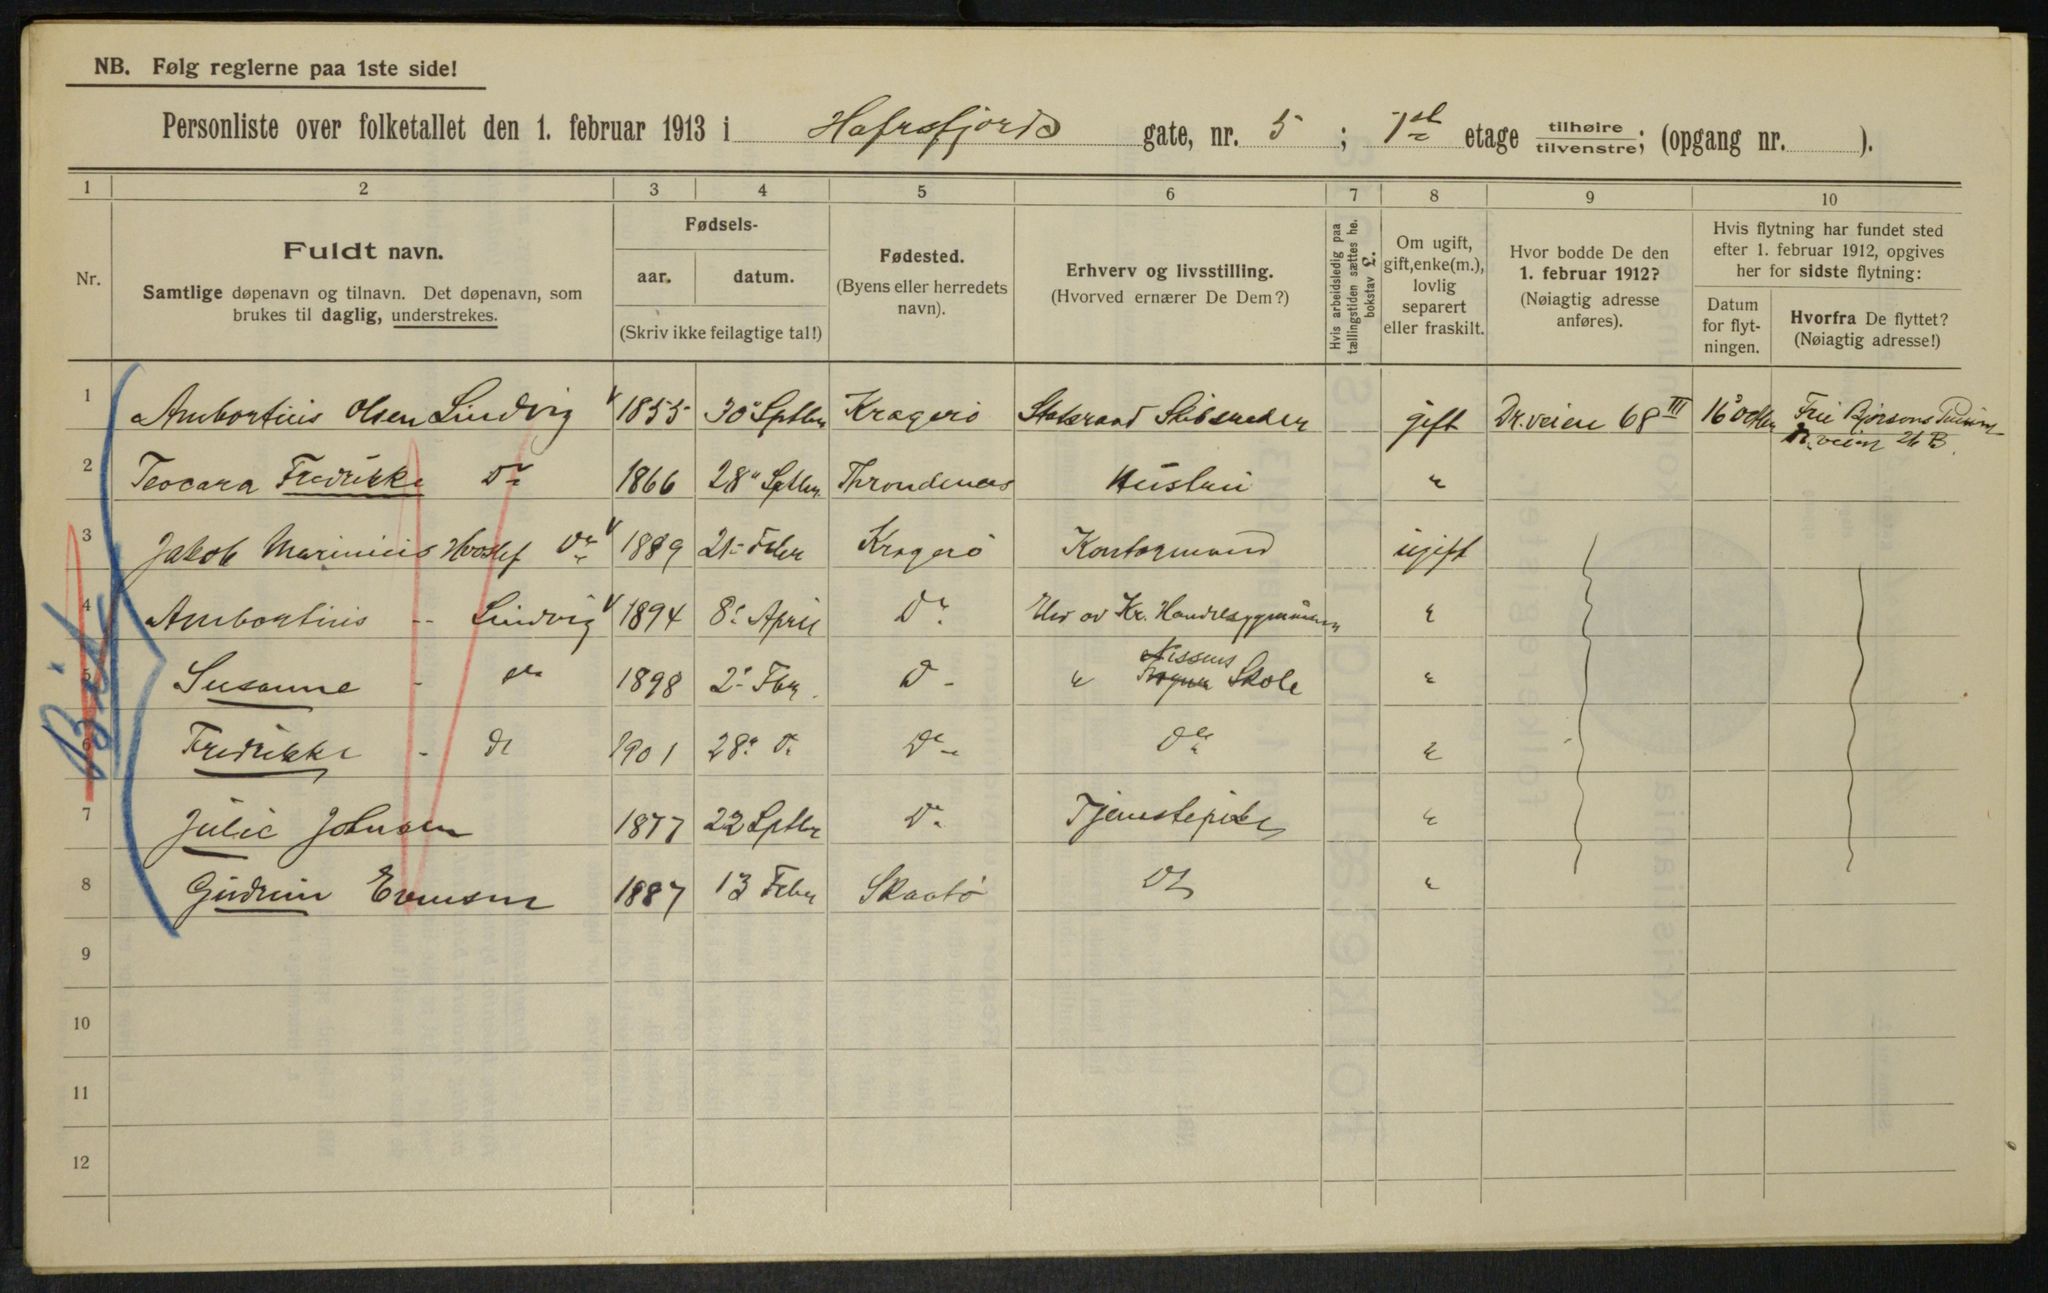 NB. Følg reglerne paa 1ste side!
Personliste over folketallet den 1. februar 1913 i Hafrsfjords gate, nr. 5 ; 1ste etage tilhøire tilvenstre; (opgang nr. ).
1 2 3 4 5 6 7 8 9 10
Nr.
Fuldt navn.
Samtlige døpenavn og tilnavn. Det døpenavn, som
brukes til daglig, understrekes.
Fødsels-
aar. datum.
(Skriv ikke feilagtige tal!)
Fødested.
(Byens eller herredets
navn).
Erhverv og livsstilling.
(Hvorved ernærer De Dem?)
Hvis arbeidsledig paa
tællingstiden sættes he.
bokstav L.
Om ugift,
gift, enke(m.),
lovlig
separert
eller fraskilt.
Hvor bodde De den
1. februar 1912?
(Nøiagtig adresse
anføres).
Hvis flytning har fundet sted
efter 1. februar 1912, opgives
her for sidste flytning:
Datum
for flyt-
ningen.
Hvorfra De flyttet?
(Nøiagtig adresse!)
1 Ambortius Olsen Lindvig 1855 30 Sptbr Kragerø Statsraad Skibsreder gift Dr.veien 68 III 16 Octbr Frü Bjørsons
Dr. veien 26 B.
2 Teocara Fredrikke Do 1866 28 Sptbr. Throndenæs Hustru "
3 Jakob Marinius Hvoslef Do 1889 21 Feber Kragerø Kontormand ugift
4 Ambortius -- Lindvig 1894 8. April Do Elev av Kr. Handelsgymnasium "
5 Susanne - do 1898 2 Fbr. D - " Nissens Skole "
6 Fredrikke - do 1901 28. D. Do Do "
7 Julie Johnsen 1877 22 Sptbr Do Tjenestepike "
8 Gudrun Evensen 1887 13 Feber Skaatø Do "
9
10
11
12